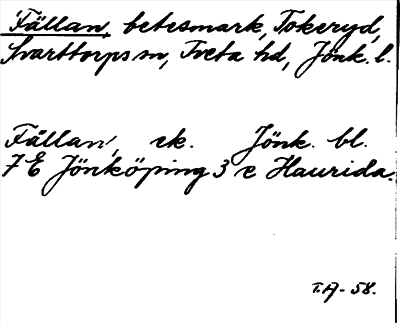 Fällan, betesmark, Tokeryd,
Svarttorps sn, Tveta hd, Jönk. l.
Fällan, ek. Jönk. bl.
7 E Jönköping 3 e Haurida.
T.A-58.